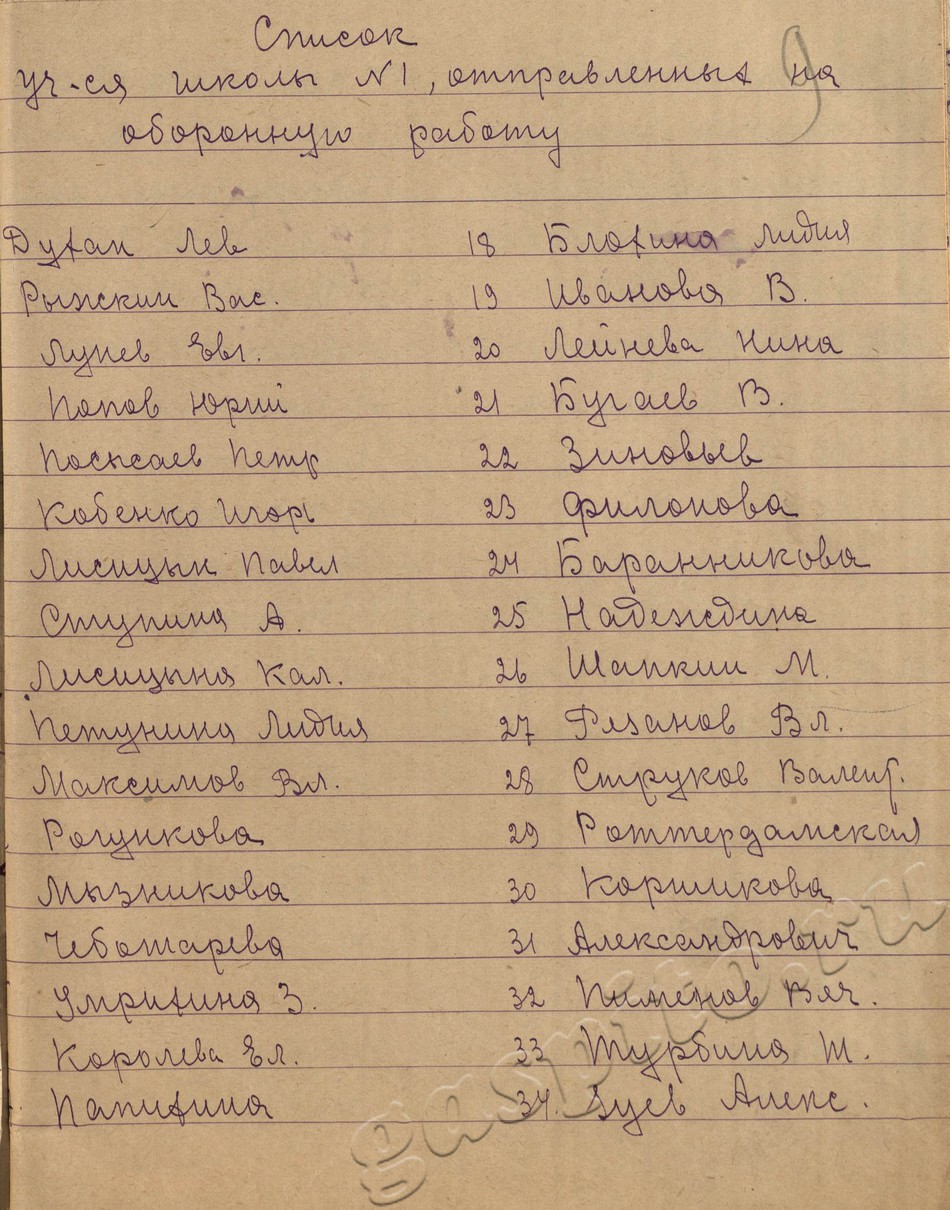 9
Список
уч-ся школы №1, отправленных на
оборонную работу
Духан Лев
Рыжкин Вас.
Лунев Евг.
Попов Юрий
Петр
Кобенко Игорь
Лисицын Павел
Ступина А.
Лисицына Кал.
Петунина Лидия
Максимов Вл.
Рогункова
Мызникова
Чеботарева
Умрихина З.
Королева Ел.
Папихина
18 Блохина Лидия
19 Иванова В.
20 Лейнева Нина
21 Бугаев В.
22 Зиновьев
23 Филонова
24 Баранникова
25 Надеждина
26 Шапкин М.
27 Рязанов Вл.
28 Струков Валент.
29 Роттердамская
30 Коршикова
31 Александрович
32 Пименов Вяч.
33 Турбина Т.
34. Зуев Алекс.
gaspito.ru